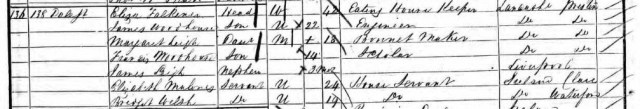 136 138 Eliza Head 42 Eating House Keeper Lancashire Preston
James Woodhouse Son U 22 Engineer Do Do
Margaret Leigh Daur M 18 Bonnet Maker Do Do
Francis Woodhouse Son 14 Scholar Do Do
James Leigh Nephew 3 Mos Liverpool
Elizabeth Servant U 24 House Servant Ireland Clare
Bridget Welsh Do U 19 Do Do Waterford